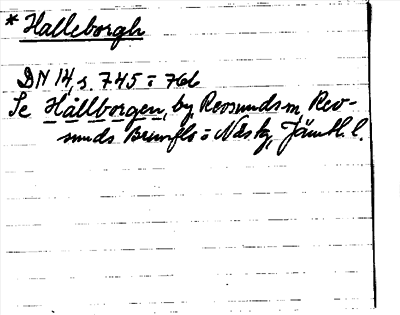 * Halleborgh
DN 14, s. 745 o 766
Se Hällborgen, by, Revsunds sn, Rev-
sunds Brunflo o Näs tg, Jämtl. l.